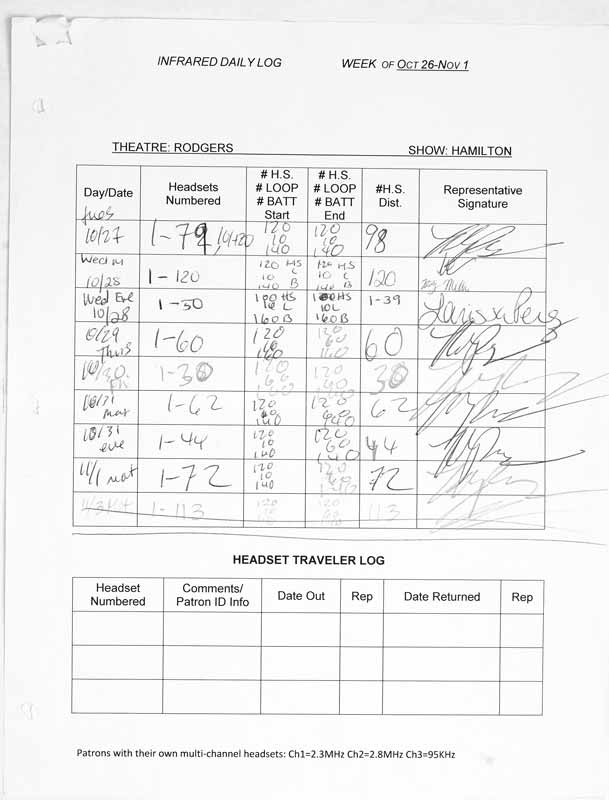 INFRARED DAILY LOG WEEK OF OCT 26-NOV 1
THEATRE: RODGERS SHOW: HAMILTON
Day/Date Headsets Numbered # H.S. # LOOP # BATT Start # H.S. # LOOP # BATT End #H.S. Dist. Representative Signature
Tues 10/27 1-79, 120 10 140 120 10 140 98
Wed M 10/28 1-120 120 HS 10 L 140 B 120 HS 10 L 140 B 120
Wed Eve 10/28 1-50 HS 10 L 160 B HS 10L 160B 1-39 Larissa
10/29 Thurs 1-60 120 120 60
10/30 Fri 1-30 120 120 30
10/31 mat 1-62 120 140 120 62
10/31 eve 1-44 120 10 140 120 60 140 44
11/1 mat 1-72 120 10 140 120 72
1-113 120 120 113
HEADSET TRAVELER LOG
Headset Numbered Comments/ Patron ID Info Date Out Rep Date Returned Rep
Patrons with their own multi-channel headsets: Ch1=2.3MHz Ch2=2.8MHz Ch3=95KHz